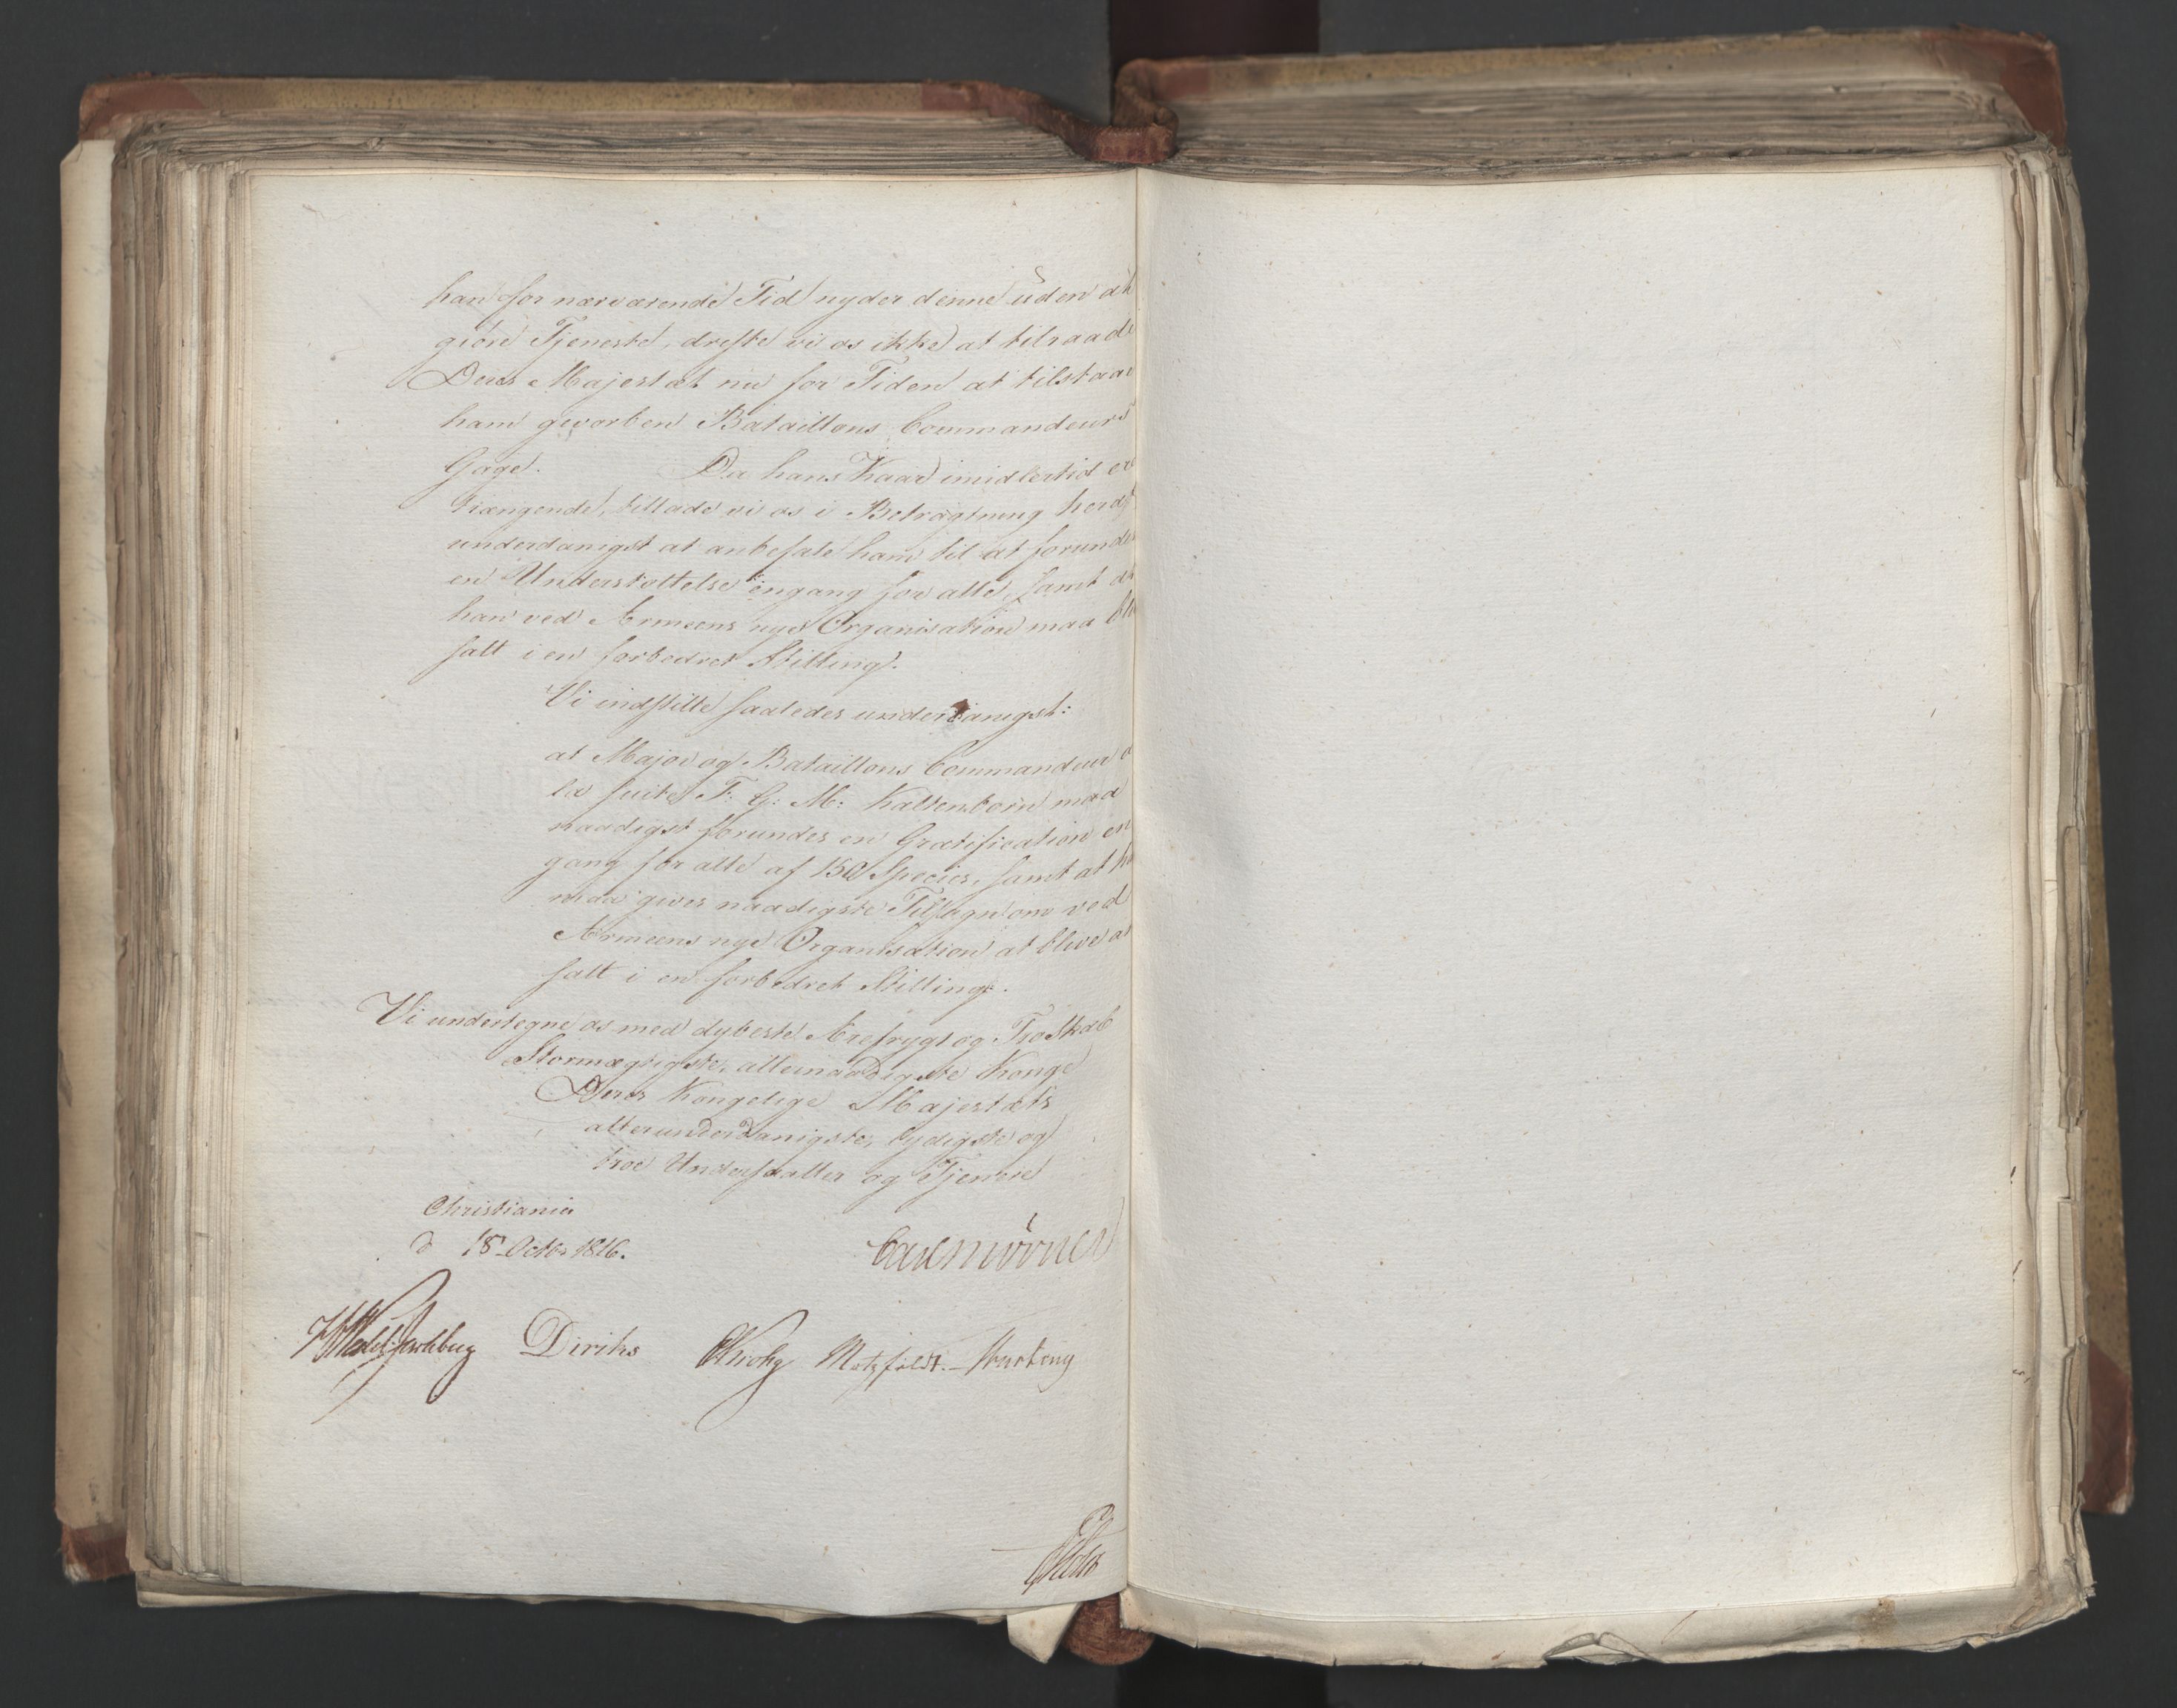 han for nærværende Tid nyder denne uden at
giöre Tjeneste, drister vi os ikke at tilraade
Deres Majestæt nu for Tiden at tilstaae
ham gevorben Bataillons Commandeurs
Gage. Da hans Kaar imidlertid er
trængende, tillade vi os i Betragtning heraf
underdanigst at anbefale ham til at forundes
en Understøttelse engang for alle, samt at
han ved Armeens nye Organisation maa blive
satt i en forbedret Stilling.
Vi indstille saaledes underdanigst:
at Major og Bataillons Commandeur a
la suite F. G. M. Kaltenborn maa
naadigst forundes en Gratification en
gang for alle af 150 Species, samt at
maa gives naadigste Tilsagn om ved
Armeens nye Organisation at blive
satt i en forbedret Stilling.
Vi undertegne os med dybeste Ærefrygt og Troskab
Stormægtigste, allernaadigste Konge
Deres Kongelige Majestæts
allerunderdanigste, lydigste og
troe Undersaatter og Tjenere
Christiania
d 18 Octbr 1816.
Carl Mörner
Diriks Krohg Motzfeldt.